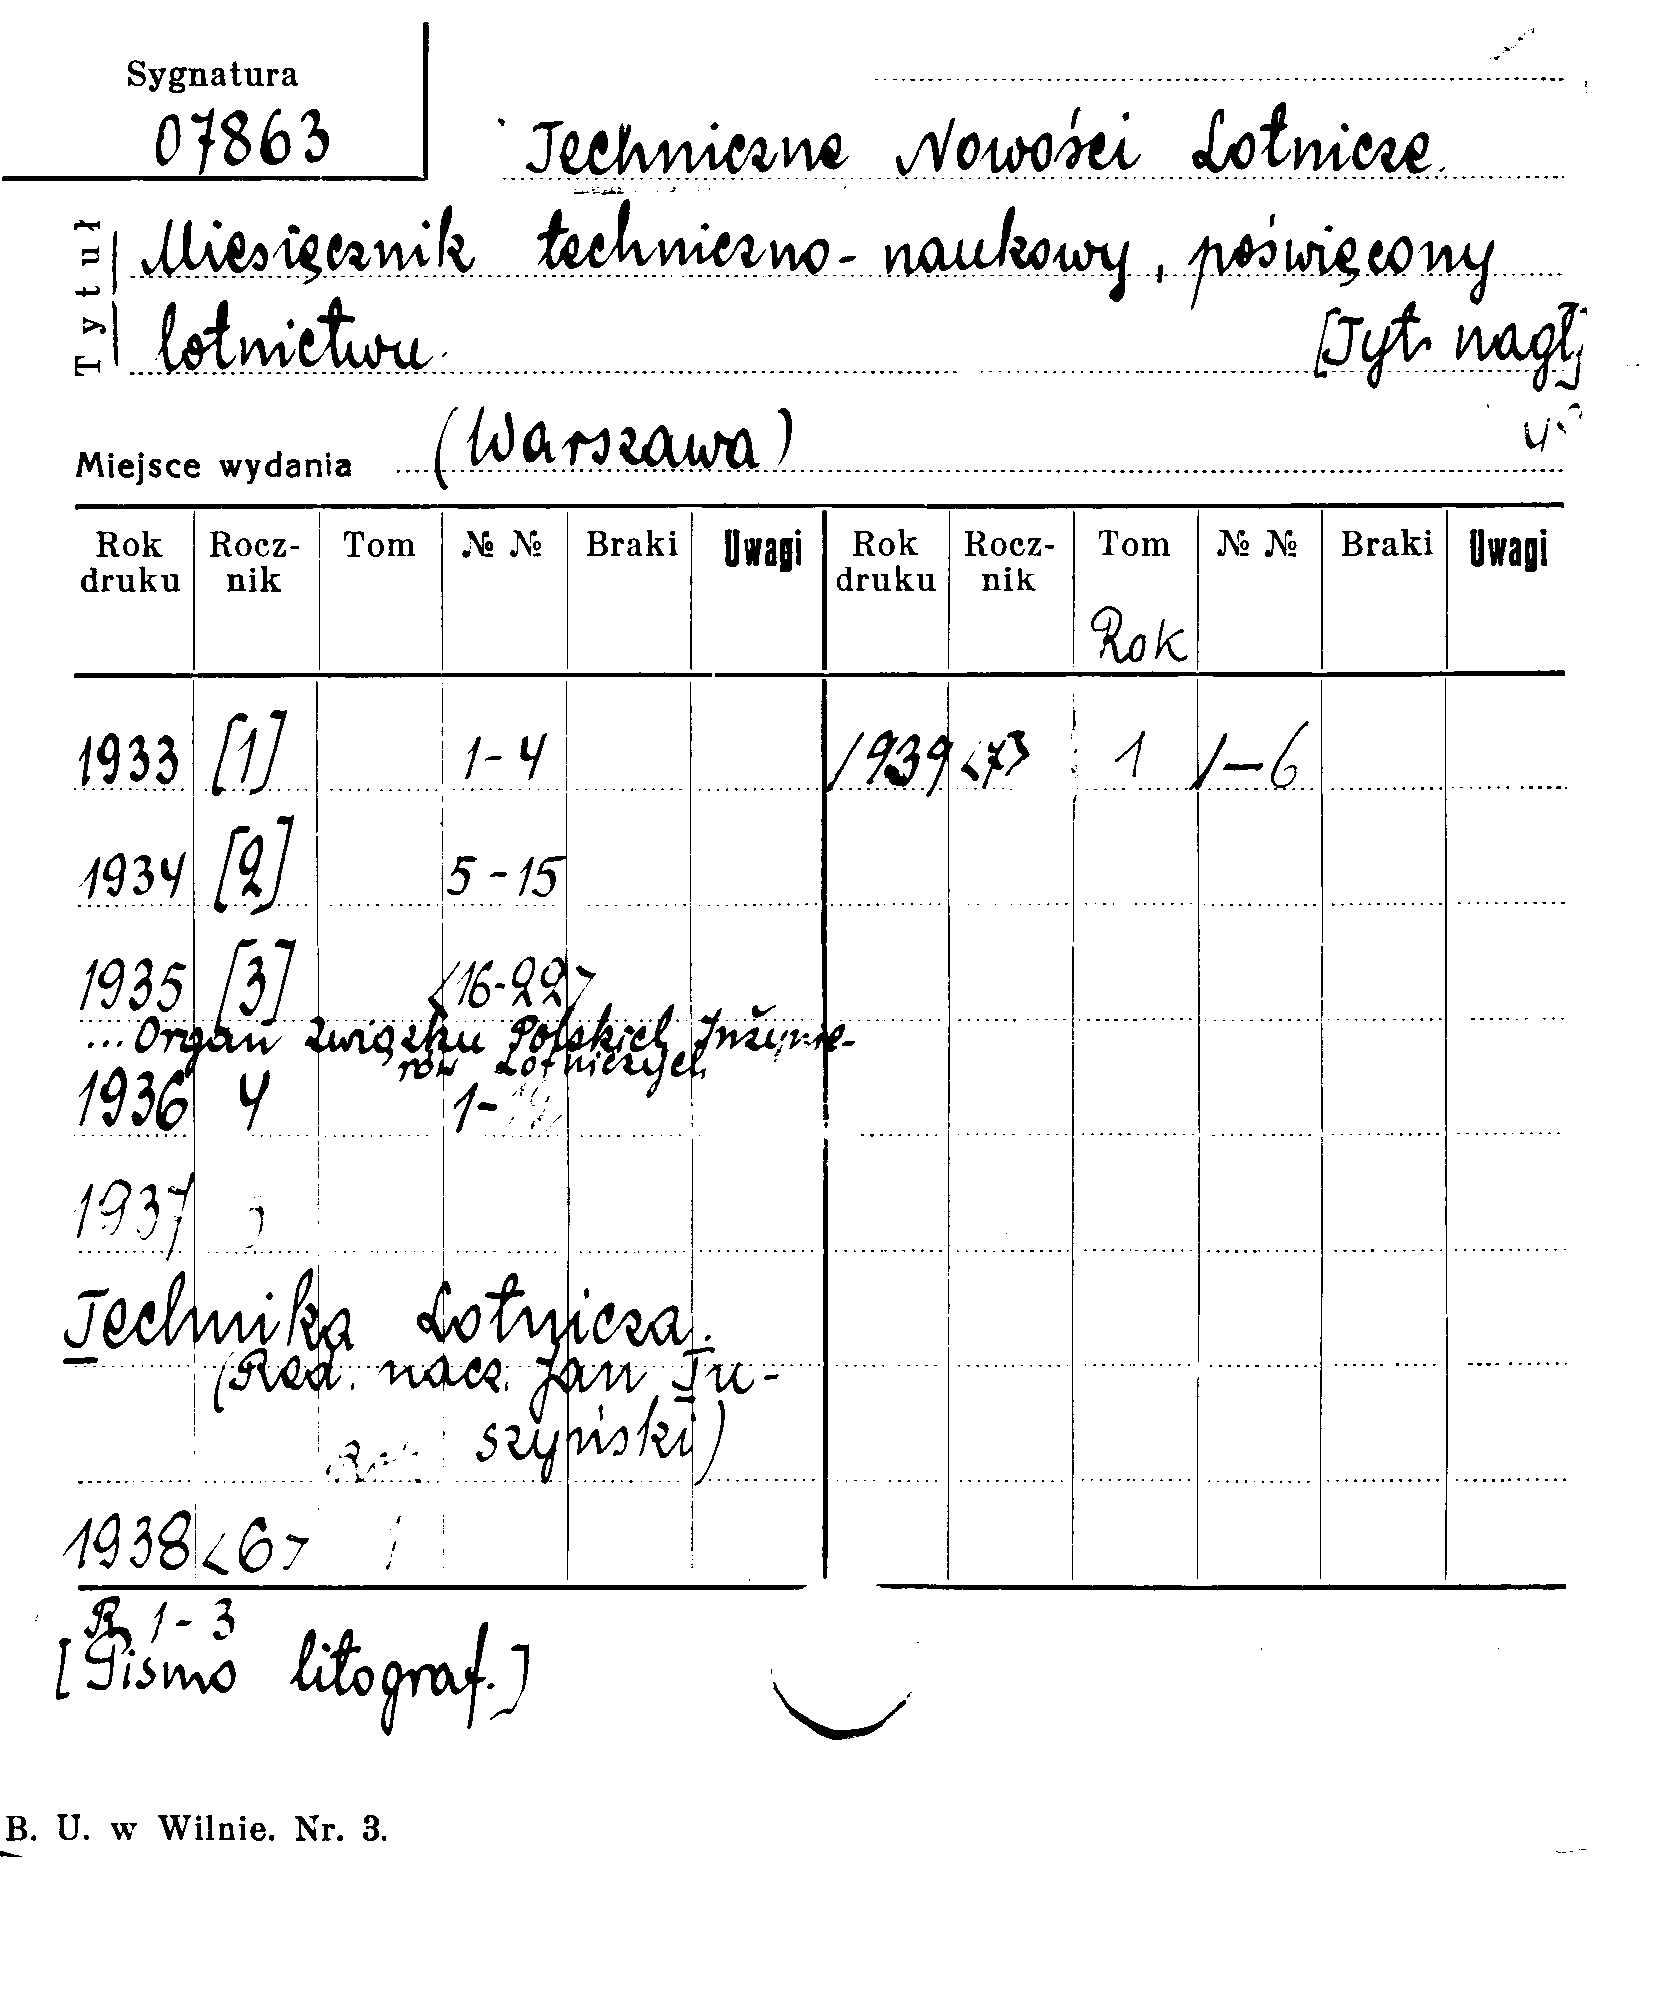 Sygnatura
07863
Techniczne Nowości Lotnicze.
Tytuł
Miesięcznik techniczno-naukowy, poświęcony
lotnictwu. [Tyt. nagł.]
4°
Miejsce wydania (Warszawa)
Rok druku Rocz-nik Tom №№ Braki Uwagi Rok druku Rocz-nik Tom №№ Braki Uwagi
Rok
1933 [1] 1-4 1939 <7> 1 1-6
1934 [2] 5-15
1935 [3] <16-22>
...Organ Związku Polskich Inżynie-
rów Lotniczych
1936 4 1-
1937
Technika Lotnicza.
(Red. nacz. Jan Tu-
szyński)
Rok
1938 <6> 1
R. 1-3
[Pismo litograf.]
B. U. w Wilnie. Nr. 3.